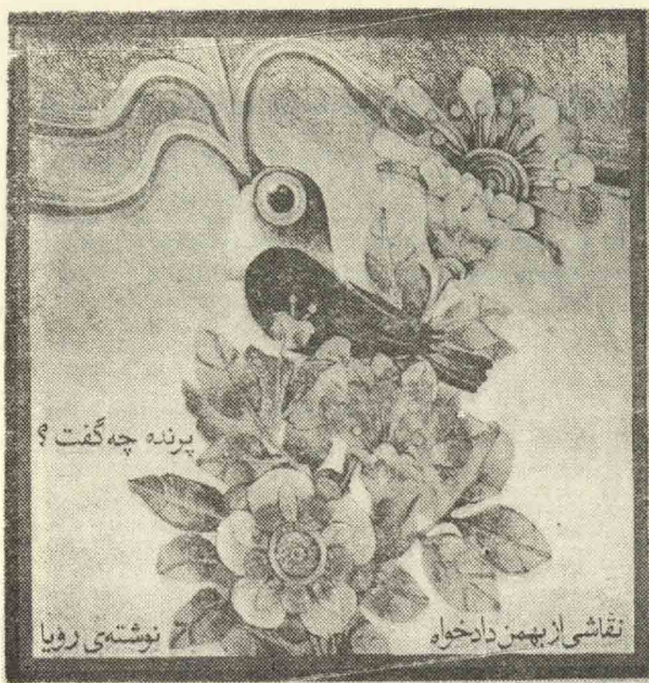 پرنده چه گفت ؟
نقاشی از بهمن دادخواه
نوشته‌ی رؤیا